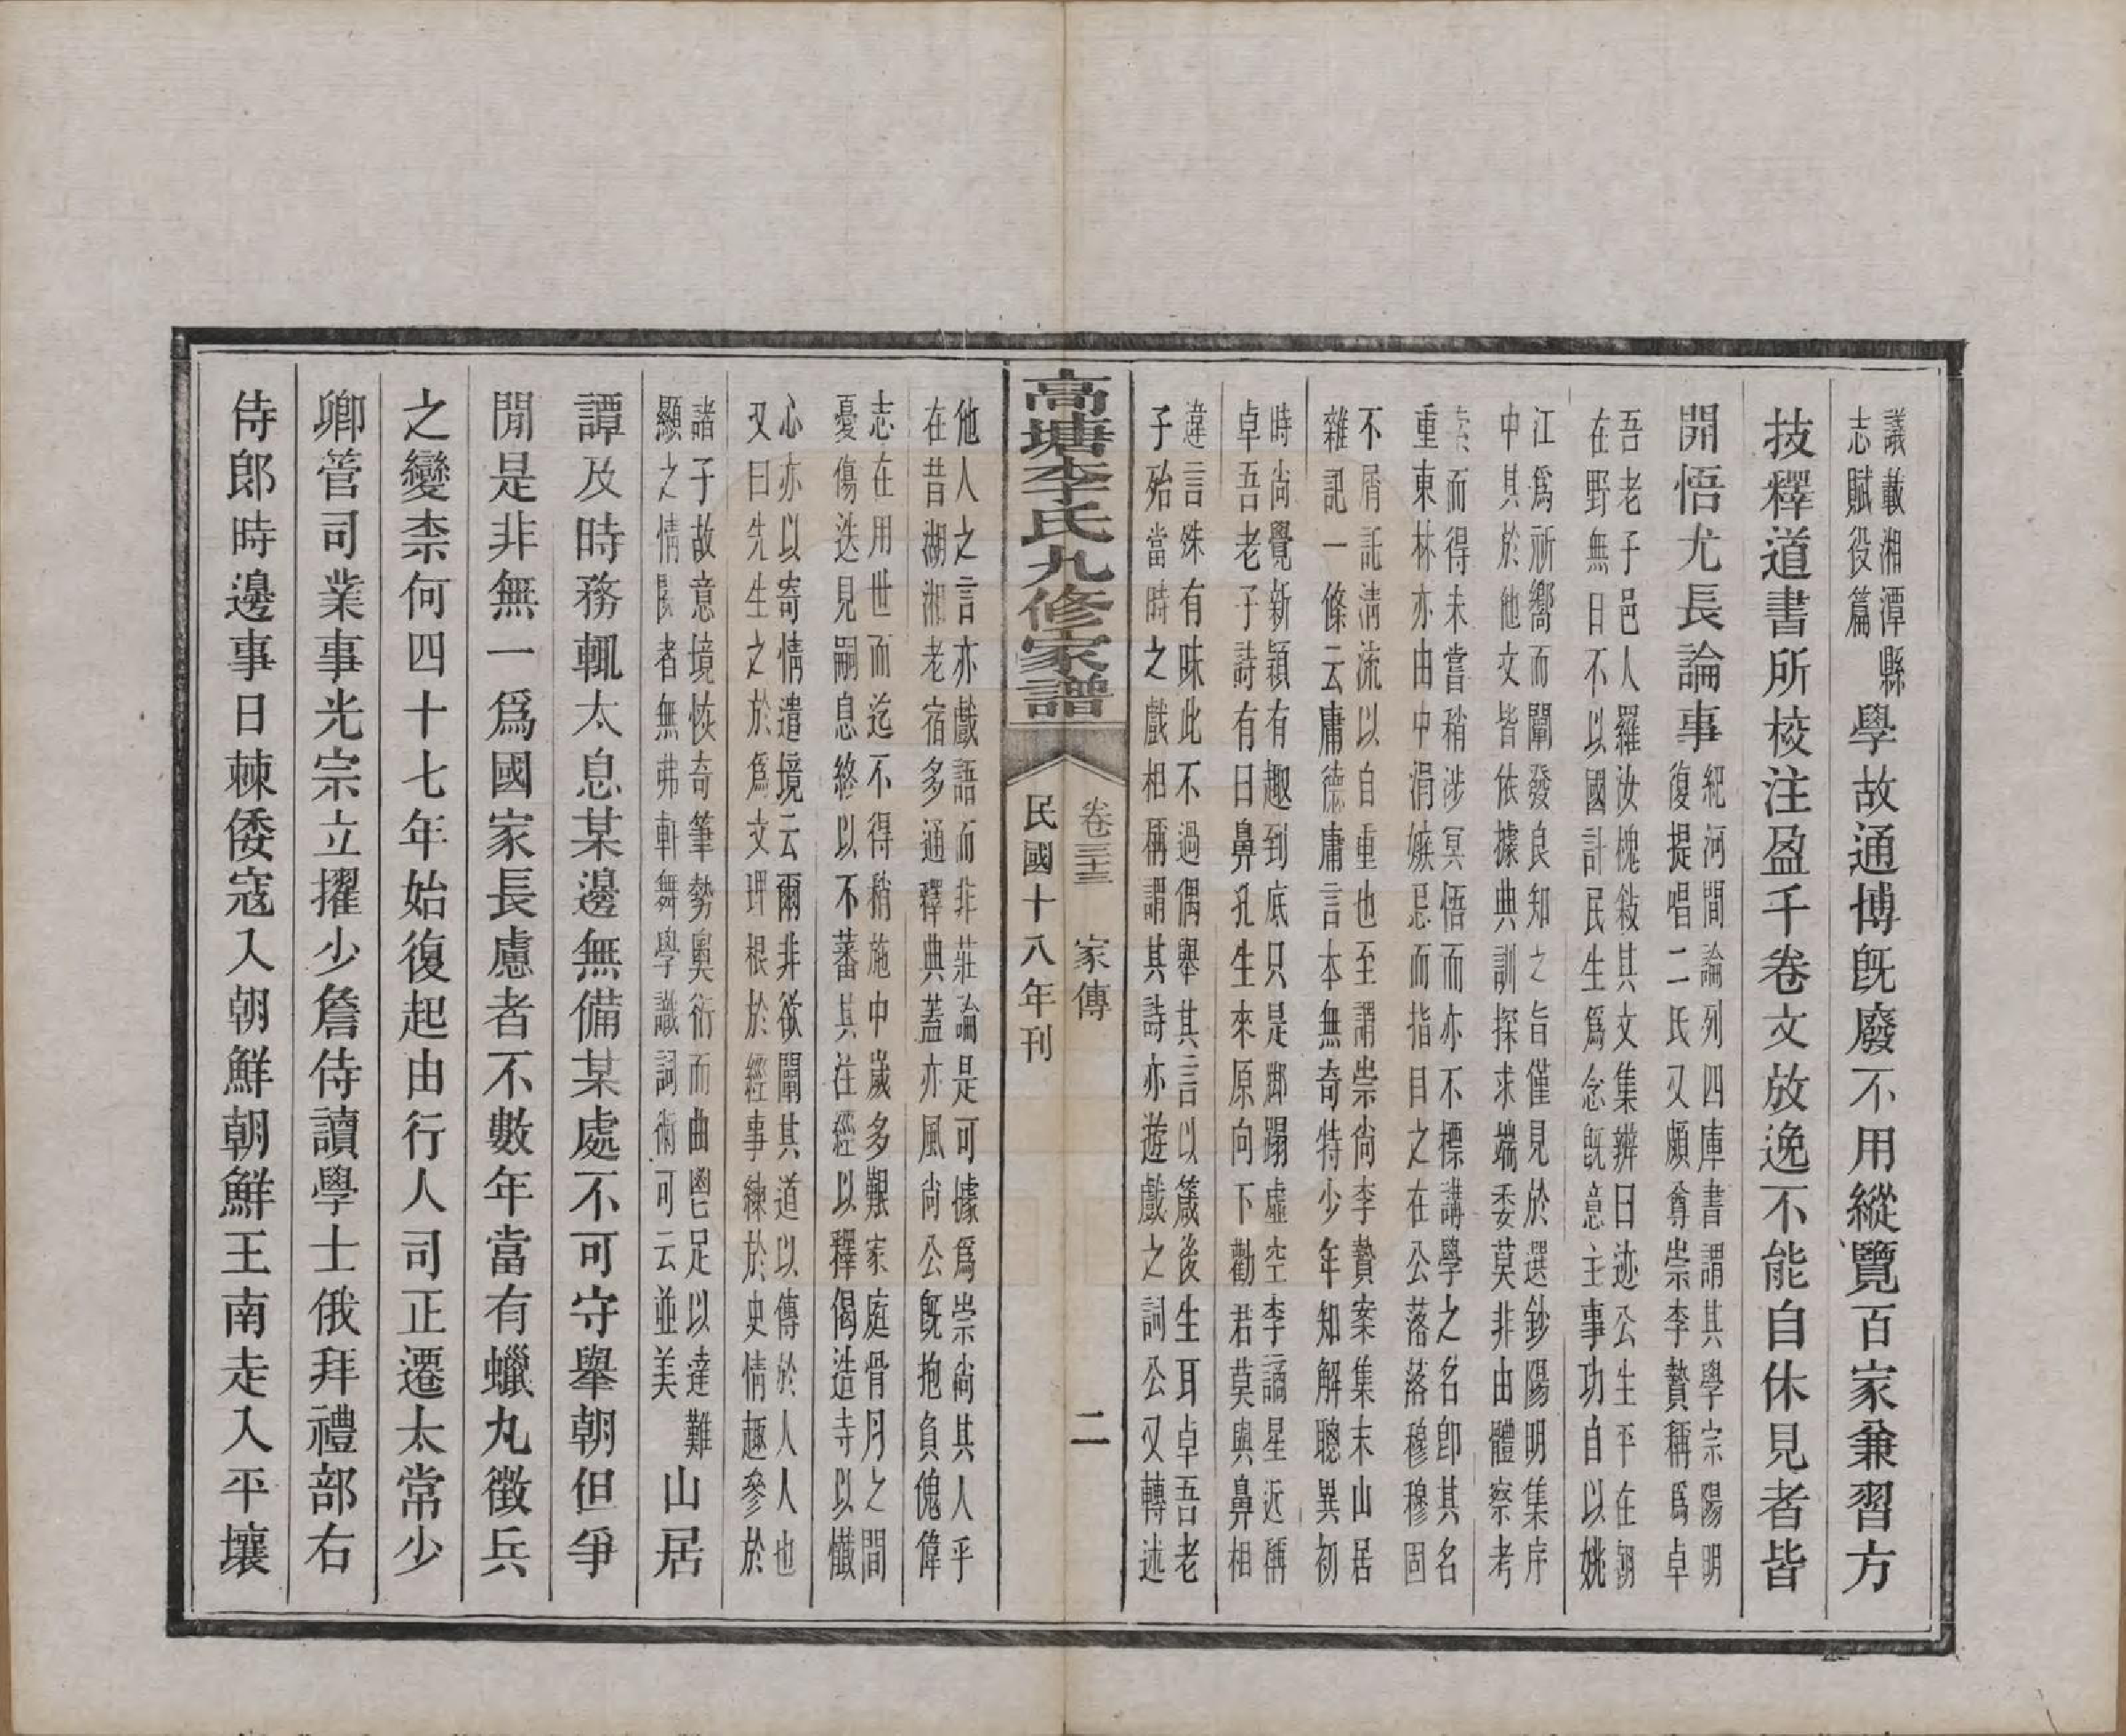 議載湘潭縣
志賦役篇
學故通博旣廢不用縱覽百家兼習方
技釋道書所校注盈千卷文放逸不能自休見者皆
開悟尤長論事
紀河間論列四庫書謂其學宗陽明
復提唱二氏又頗尊崇李贄稱爲卓
吾老子邑人羅汝槐敍其文集辨曰迹公生平在朝
在野無日不以國計民生爲念旣意主事功自以姚
江爲祈嚮而闡發良知之旨僅見於選鈔陽明集序
中其於他文皆依據典訓探求端委莫非由體察考
索而得未嘗稍涉冥悟而亦不標講學之名卽其名
重東林亦由中涓嫉忌而指目之在公落落穆穆固
不屑託淸流以自重也至謂崇尙李贄案集末山居
雜記一條云庸德庸言本無奇特少年知解聰異初
時尙覺新穎有趣到底只是踋蹋虛空李謫星近稱
卓吾老子詩有曰鼻孔生來原向下勸君莫與鼻相
違言殊有味此不過偶舉其言以箴後生耳卓吾老
子殆當時之戲相稱謂其詩亦遊戲之詞公又轉述
高塘李氏九修家譜
卷三十三 家傳 二
民國十八年刊
他人之言亦戲語而非莊論是可據爲崇尙其人乎
在昔湖湘老宿多通釋典蓋亦風尙公旣抱負傀偉
志在用世而迄不得稍施中歲多艱家庭骨月之間
憂傷迭見嗣息終以不蕃其注經以釋偈造寺以懺
心亦以寄情遣境云爾非欲闡其道以傳於人人也
又曰先生之於爲文理根於經事練於史情趣參於
諸子故意境恢奇筆勢奧衍而曲鬯足以達難
顯之情閱者無弗軒舞學識詞術可云並美
山居
譚及時務輒太息某邊無備某處不可守舉朝但爭
閒是非無一爲國家長慮者不數年當有蠟丸徵兵
之變柰何四十七年始復起由行人司正遷太常少
卿管司業事光宗立擢少詹侍讀學士俄拜禮部右
侍郎時邊事日棘倭寇入朝鮮朝鮮王南走入平壤